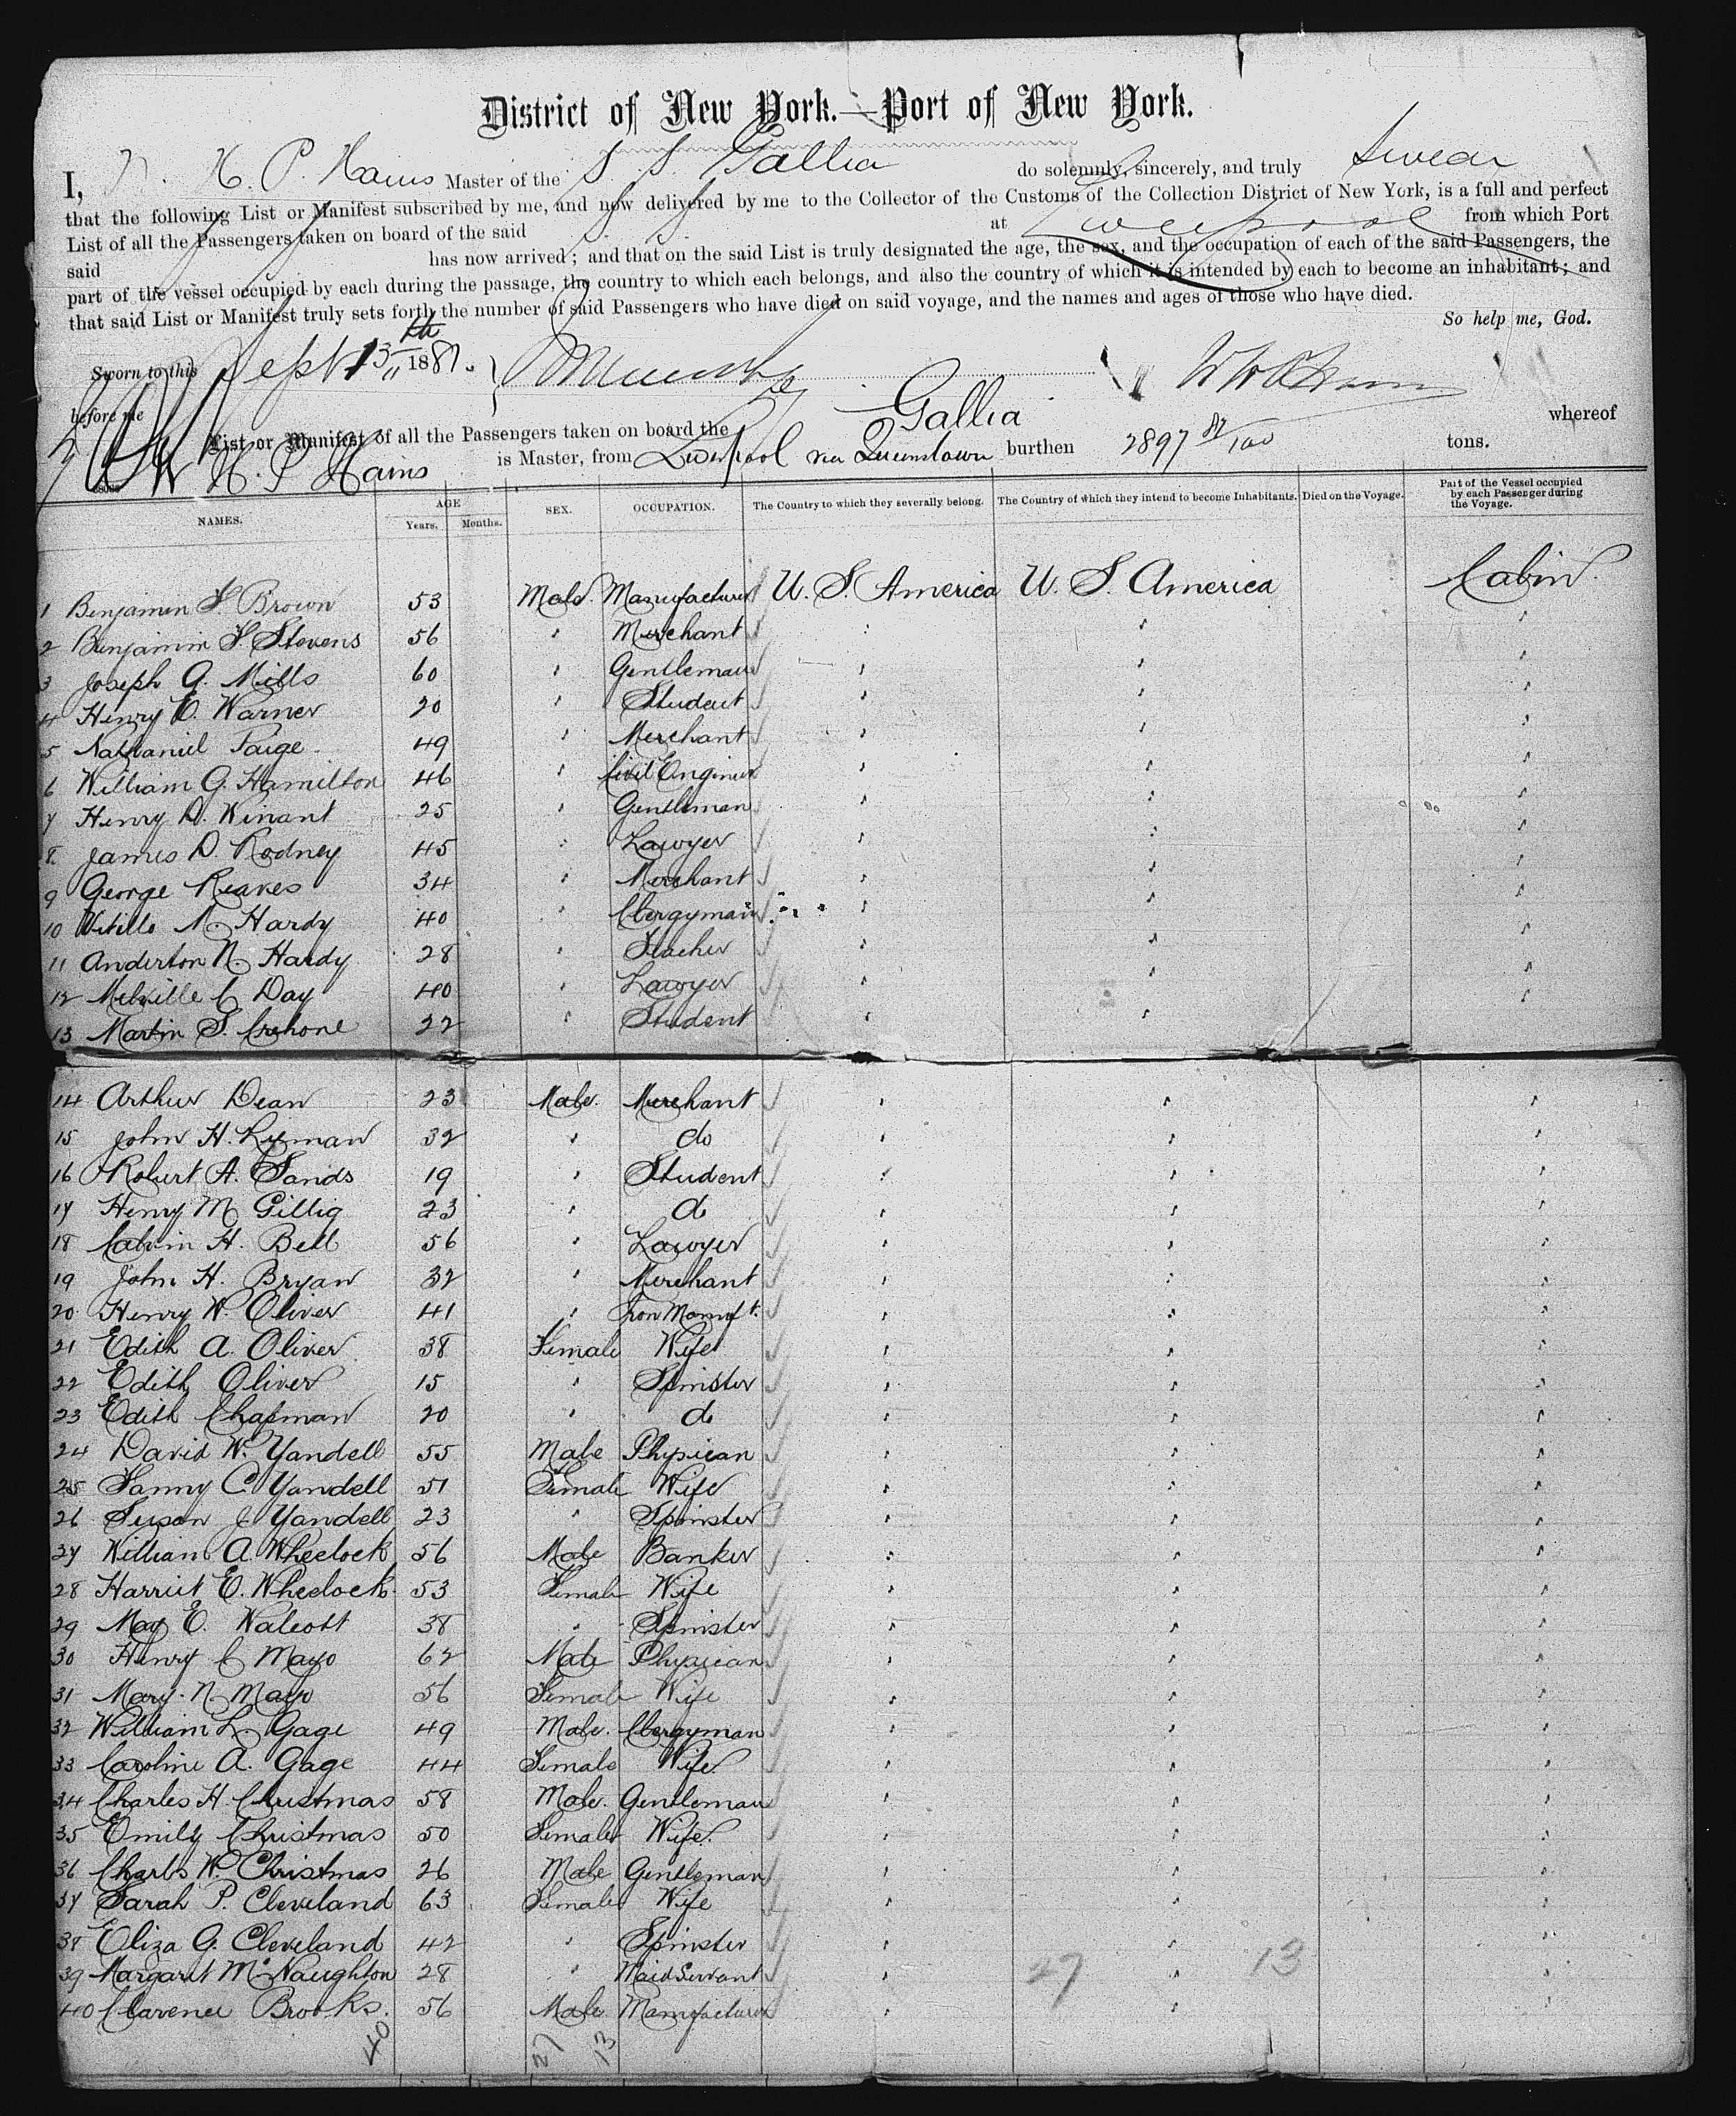 District of New York.—Port of New York.
I, H. P. Hains Master of the S. S. Gallia do solemnly, sincerely, and truly Swear
that the following List or Manifest subscribed by me, and now delivered by me to the Collector of the Customs of the Collection District of New York, is a full and perfect
List of all the Passengers taken on board of the said S. S. at Liverpool from which Port
said has now arrived; and that on the said List is truly designated the age, the sex, and the occupation of each of the said Passengers, the
part of the vessel occupied by each during the passage, the country to which each belongs, and also the country of which it is intended by each to become an inhabitant; and
that said List or Manifest truly sets forth the number of said Passengers who have died on said voyage, and the names and ages of those who have died.
So help me, God.
Sworn to this Sept 13th 1881.
before me
List or Manifest of all the Passengers taken on board the Gallia whereof
H. P. Hains is Master, from Liverpool via Queenstown burthen 2897 81/100 tons.
NAMES. AGE Years. Months. SEX. OCCUPATION. The Country to which they severally belong. The Country of which they intend to become Inhabitants. Died on the Voyage. Part of the Vessel occupied by each Passenger during the Voyage.
1 Benjamin F. Brown 53 Male. Manufacturer U. S. America U. S. America Cabin
2 Benjamin F. Stevens 56 " Merchant " " "
3 Joseph A. Mills 60 " Gentleman " " "
4 Henry E. Warner 20 " Student " "
5 Nathaniel Paige 49 " Merchant " " "
6 William G. Hamilton 46 " Civil Engineer " " "
7 Henry D. Winant 25 " Gentleman " " "
8 James D. Rodney 45 " Lawyer " " "
9 George Reaves 34 " Merchant " " "
10 M. Hardy 40 " Clergyman " " "
11 Anderton N. Hardy 28 " Teacher " " "
12 Melville C Day 40 " Lawyer " " "
13 Martin S. Crehone 22 " Student " " "
14 Arthur Dean 23 Male. Merchant " " "
15 John H. Lyman 32 " do " " "
16 Robert A. Sands 19 " Student " " "
17 Henry M Gillig 23 " do " " "
18 Calvin H. Bell 56 " Lawyer " " "
19 John H. Bryan 32 " Merchant " " "
20 Henry W. Oliver 41 " Iron Manuft. " " "
21 Edith A. Oliver 38 Female Wife " " "
22 Edith Oliver 15 " Spinster " " "
23 Edith Chapman 20 " do " " "
24 David W. Yandell 55 Male Physican " " "
25 Fanny C. Yandell 51 Female Wife " " "
26 Susan J Yandell 23 " Spinster " " "
27 William A. Wheelock 56 Male Banker " " "
28 Harriet E. Wheelock 53 Female Wife " " "
29 May E. Walcott 38 " Spinster " " "
30 Henry C Mayo 62 Male Physican " " "
31 Mary N. Mayo 56 Female Wife " " "
32 William L. Gage 49 Male. Clergyman " " "
33 Caroline A. Gage 44 Female Wife " " "
34 Charles H. Christmas 58 Male. Gentleman " " "
35 Emily Christmas 50 Female Wife. " " "
36 Charles W. Christmas 26 Male Gentleman " " "
37 Sarah P. Cleveland 63 Female Wife " " "
38 Eliza G. Cleveland 42 " Spinster " " "
39 Margaret McNaughton 28 " Maid Servant " 27 " 13 "
40 Clarence Brooks. 56 Male Manufacturer " " "
40 27 13